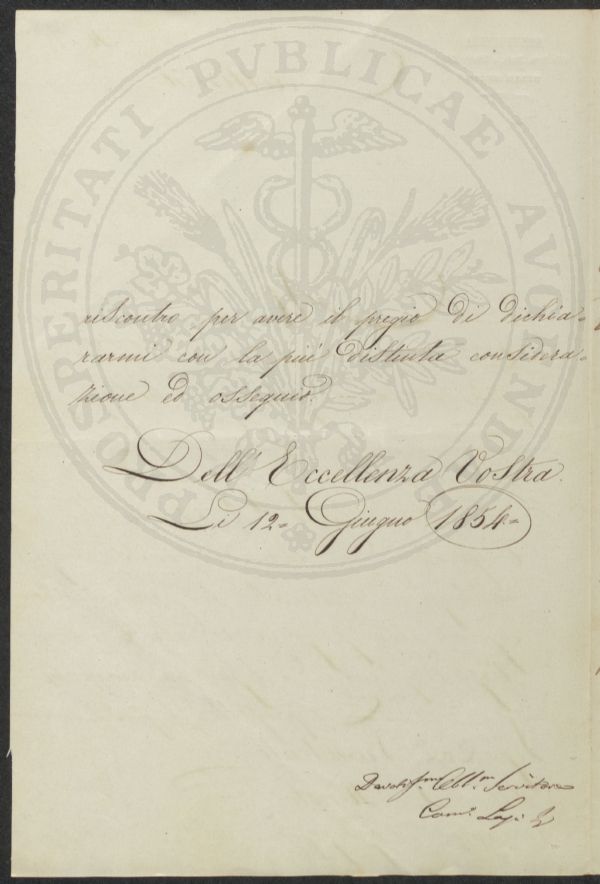 PROSPERITATI PVBLICAE AVGENDAE
riscontro per avere il pregio di dichia=
rarmi con la più distinta considera=
zione ed ossequio.
Dell' Eccellenza Vostra.
Li 12= Giugno 1854=
Devotis.mo Obbl.mo Servitore